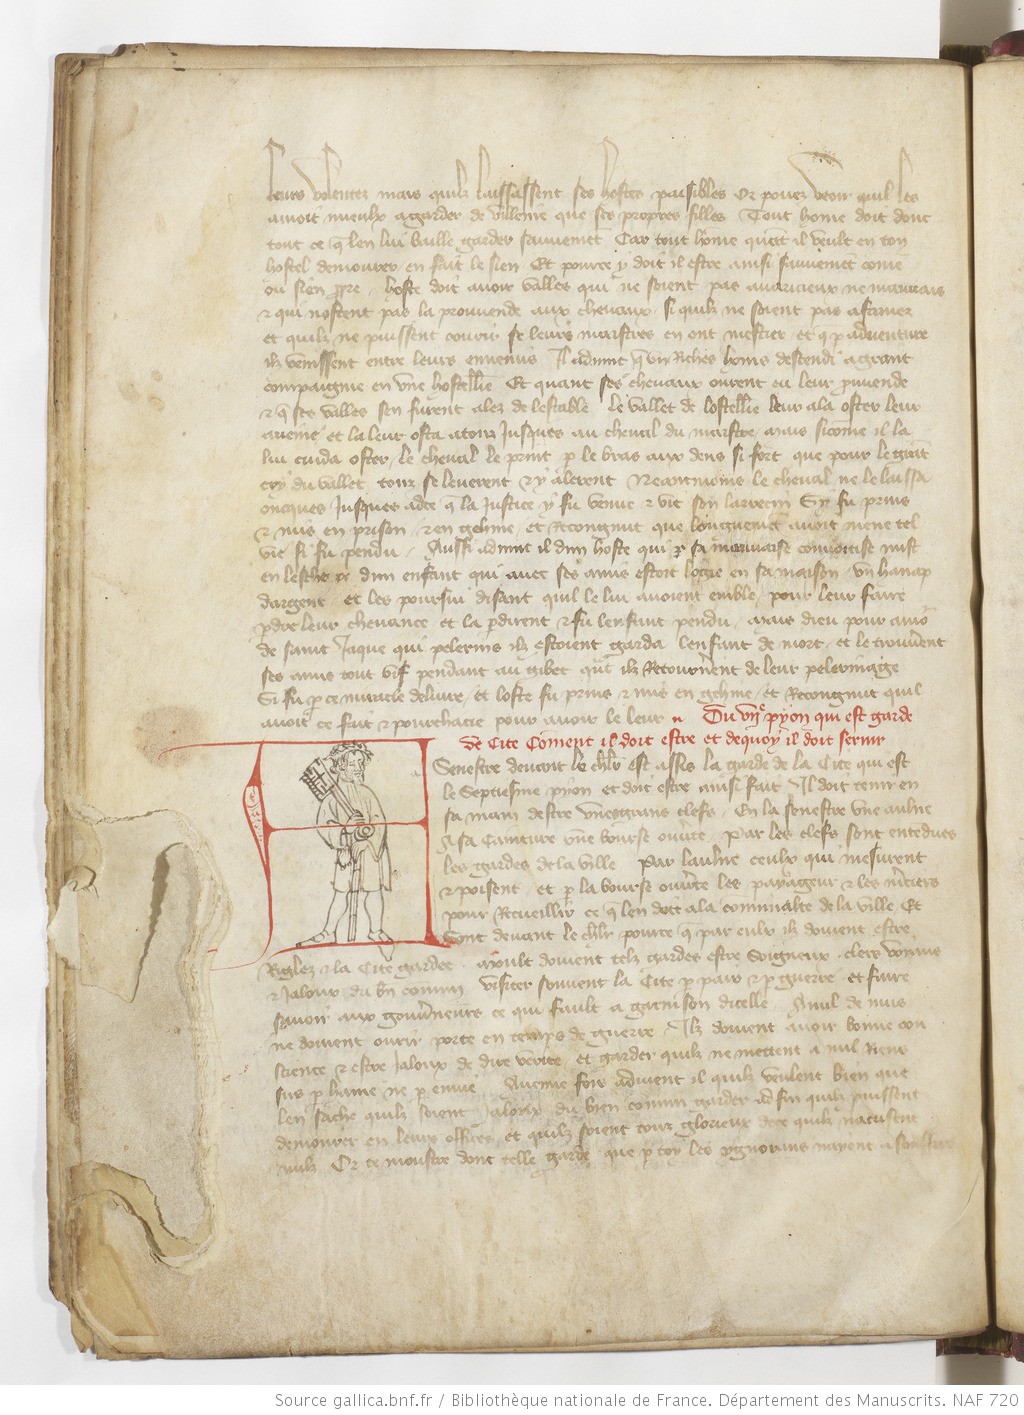 leurs volentez mais quilz laissassent ses hostes paisibles Or povez veoir quil les
amoit mieulx a garder de villenie que ses propres filles Tout home doit dont
tout ce q len lui baille garder sauvemet Car tout home quat il veult en ton
hostel demourer en fait le sien Et pource y doit il estre ainsi sauvemet come
ou sien ppre hoste doit avoir valles qui ne soient pas avaricieux ne mauvais
et qui nostent pas la prouvende aux chevaux si quilz ne soient pas afamez
et quilz ne puissent courir se leurs maistres en ont mestier et q p adventure
ilz venissent entre leurs ennemis Il advint q un Riches homs descendi a grant
compaignie en une hostellie Et quant ses chevaux ourent eu leur pvuende
et q ses valles sen furent alez de lestable le vallet de lostellie leur ala oster leur
aveine et la leur osta a touz Jusques au cheval du maistre mais sicome il la
lui cuida oster le cheval le print p le bras aux dens si fort que pour le grat
cry du vallet touz se leverent et y alerent Neantmoins le cheval ne le laissa
oncques Jusques adce q la Justice y fu venue et vit son larrecin Sy fu prins
et mis en prison et en gehine et Recongnut que longuemet avoit mene tel
vie si fu pendu Aussi advint il dun hoste qui p sa mauvaise convoitise mist
en dun enfant qui avec ses amis estoit logie en sa maison un hanap
dargent et les poursui disant quil le lui avoient emble pour leur faire
pdre leur chevance et la pdirent et fu lenfant pendu mais dieu pour amo
de saint Jaque qui pelerins ilz estoient garda lenfant de mort et le trouverent
ses amis tout vif pendant au gibet qat ilz Retournerent de leur pelerinage
Si fu p ce miracle delivre et loste fu prins et mis en gehine et Recongnut quil
avoit ce fait et pourchacie pour avoir le leur Du vije pyon qui est garde
de Cite Coment il doit estre et dequoy il doit servir
Senestre devant le chlr est assis la garde de la Cite qui est
le Septiesme pyon et doit estre ainsi fait Il doit tenir en
sa main destre unes grans clefs En la senestre une aulne
A sa Cainture une bourse ouverte Par les clefs sont entedues
les gardes de la ville Par laulne ceulx qui mesurent
et poisent et p la bourse ouverte les payageur et les mciers
pour Recueillir ce q len doit a la comunalte de la ville Et
sont devant le chlr pource q par eulx ilz doivent estre
Riglez et la Cite gardee Moult doivent telz gardes estre Soigneux clers voyans
et Jaloux du bn comun visiter souvent la Cite p paix et p guerre et faire
savoir aux gouverneurs ce qui fault a garnison dicelle A nul de nuis
ne doivent ouvrir porte en temps de guerre Ilz doivent avoir bonne con
science et estre Jaloux de dire verite et garder quilz ne mettent a nul Riens
sus p haine ne p envie Aucune fois advient il quilz veulent bien que
len sache quilz soient Jaloux du bien comun garder ad fin quilz puissent
demourer en leurs offices et quilz soient touz glorieux dece quilz nacusent
nulz Or te monstre dont telle garde que p toy les ygnorans nayent a
Source gallica.bnf.fr / Bibliothèque nationale de France. Département des Manuscrits. NAF 720